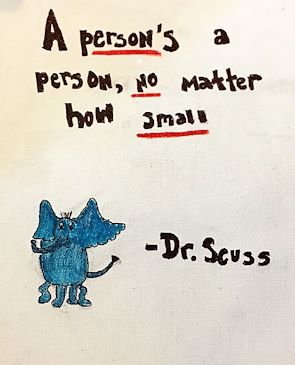 A person's a
person, no matter
how small
-Dr. Seuss